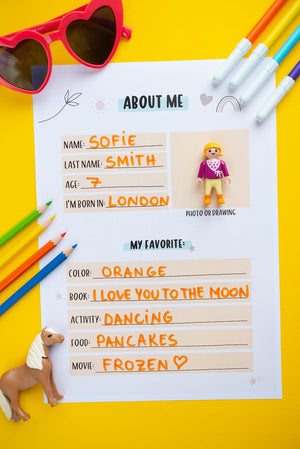 ABOUT ME
NAME: SOFIE
LAST NAME: SMITH
AGE: 7
I'M BORN IN: LONDON
PHOTO OR DRAWING
MY FAVORITE:
COLOR: ORANGE
BOOK: I LOVE YOU TO THE MOON
ACTIVITY: DANCING
FOOD: PANCAKES
MOVIE: FROZEN ♡